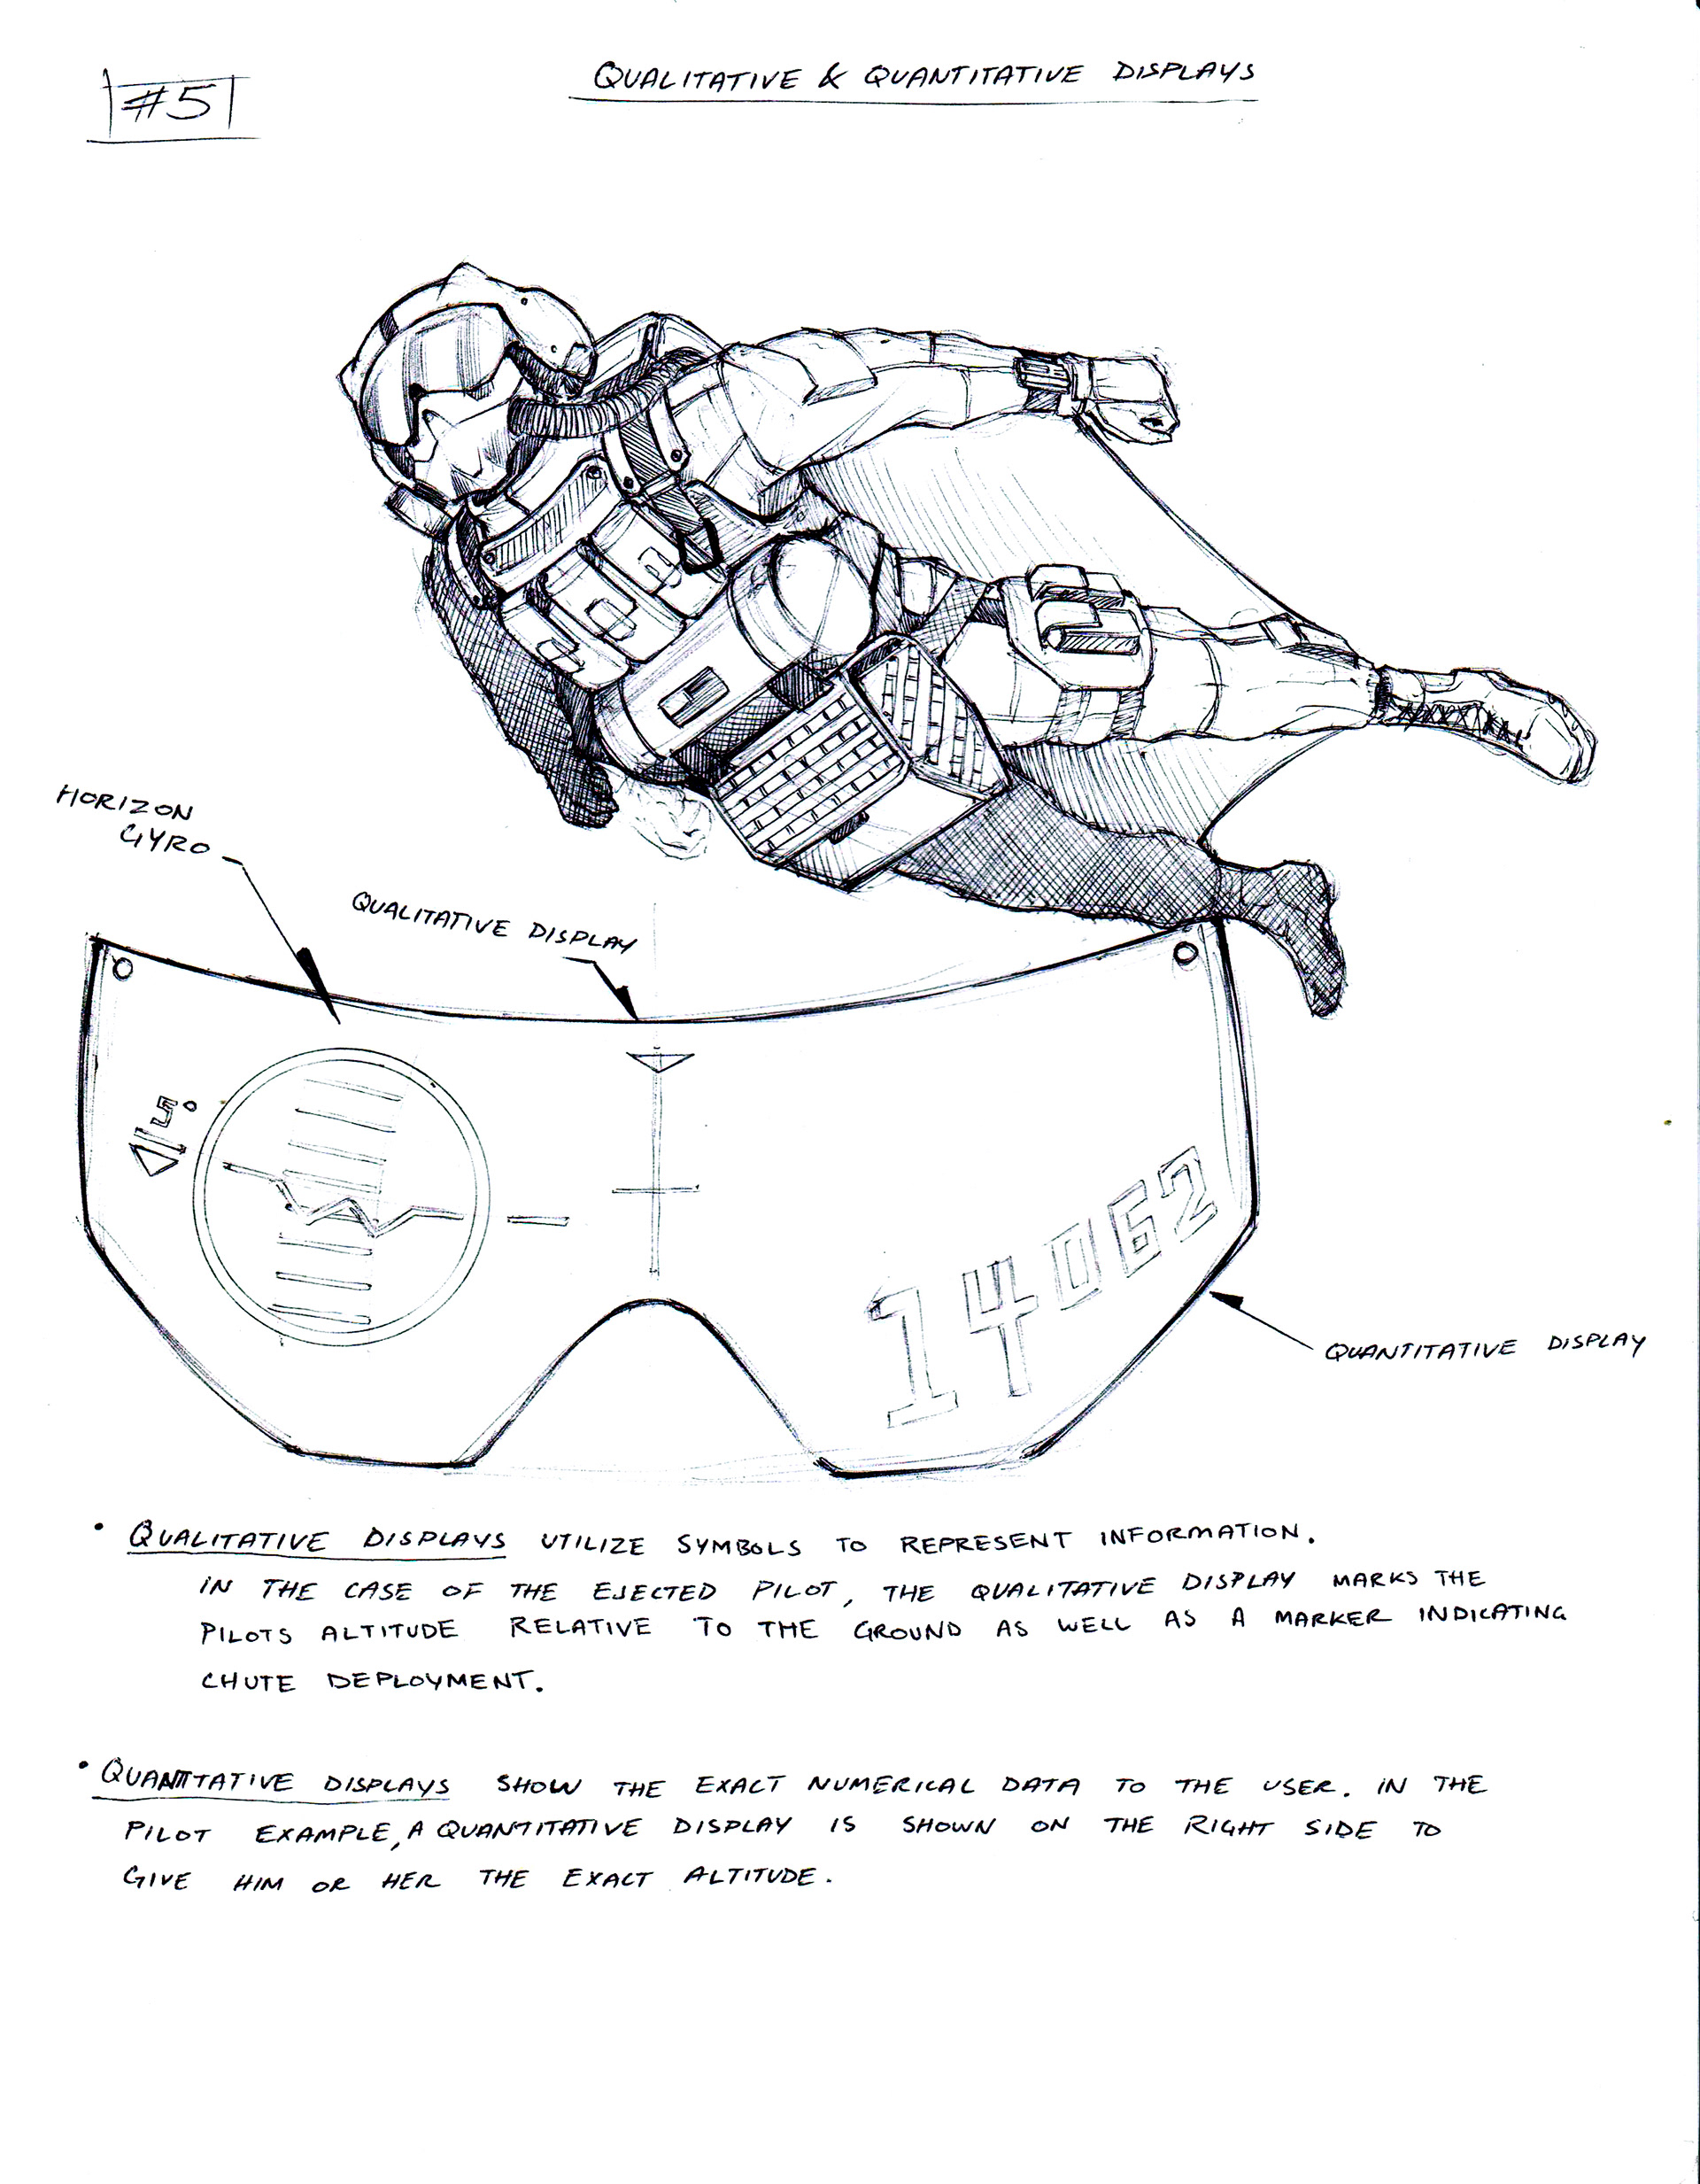 #5
QUALITATIVE & QUANTITATIVE DISPLAYS
HORIZON
GYRO
QUALITATIVE DISPLAY
5°
14062
QUANTITATIVE DISPLAY
• QUALITATIVE DISPLAYS UTILIZE SYMBOLS TO REPRESENT INFORMATION.
IN THE CASE OF THE EJECTED PILOT, THE QUALITATIVE DISPLAY MARKS THE
PILOTS ALTITUDE RELATIVE TO THE GROUND AS WELL AS A MARKER INDICATING
CHUTE DEPLOYMENT.
• QUANTITATIVE DISPLAYS SHOW THE EXACT NUMERICAL DATA TO THE USER. IN THE
PILOT EXAMPLE, A QUANTITATIVE DISPLAY IS SHOWN ON THE RIGHT SIDE TO
GIVE HIM OR HER THE EXACT ALTITUDE.